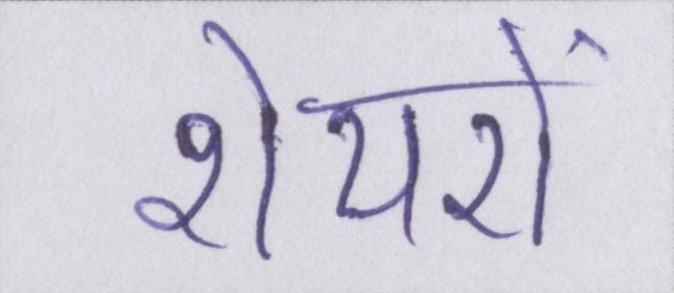 शेयरों